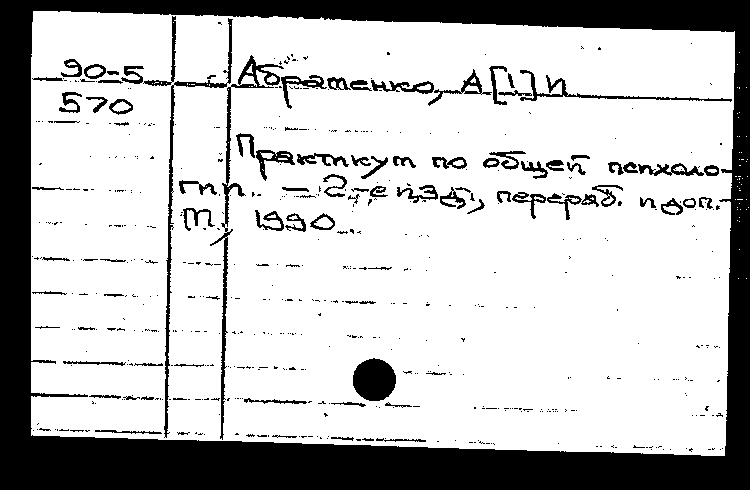 90-5 Абраменко, А[1] И
570
Практикум по общей психоло-
гии. — 2-е изд., перераб. и доп.-
М., 1990